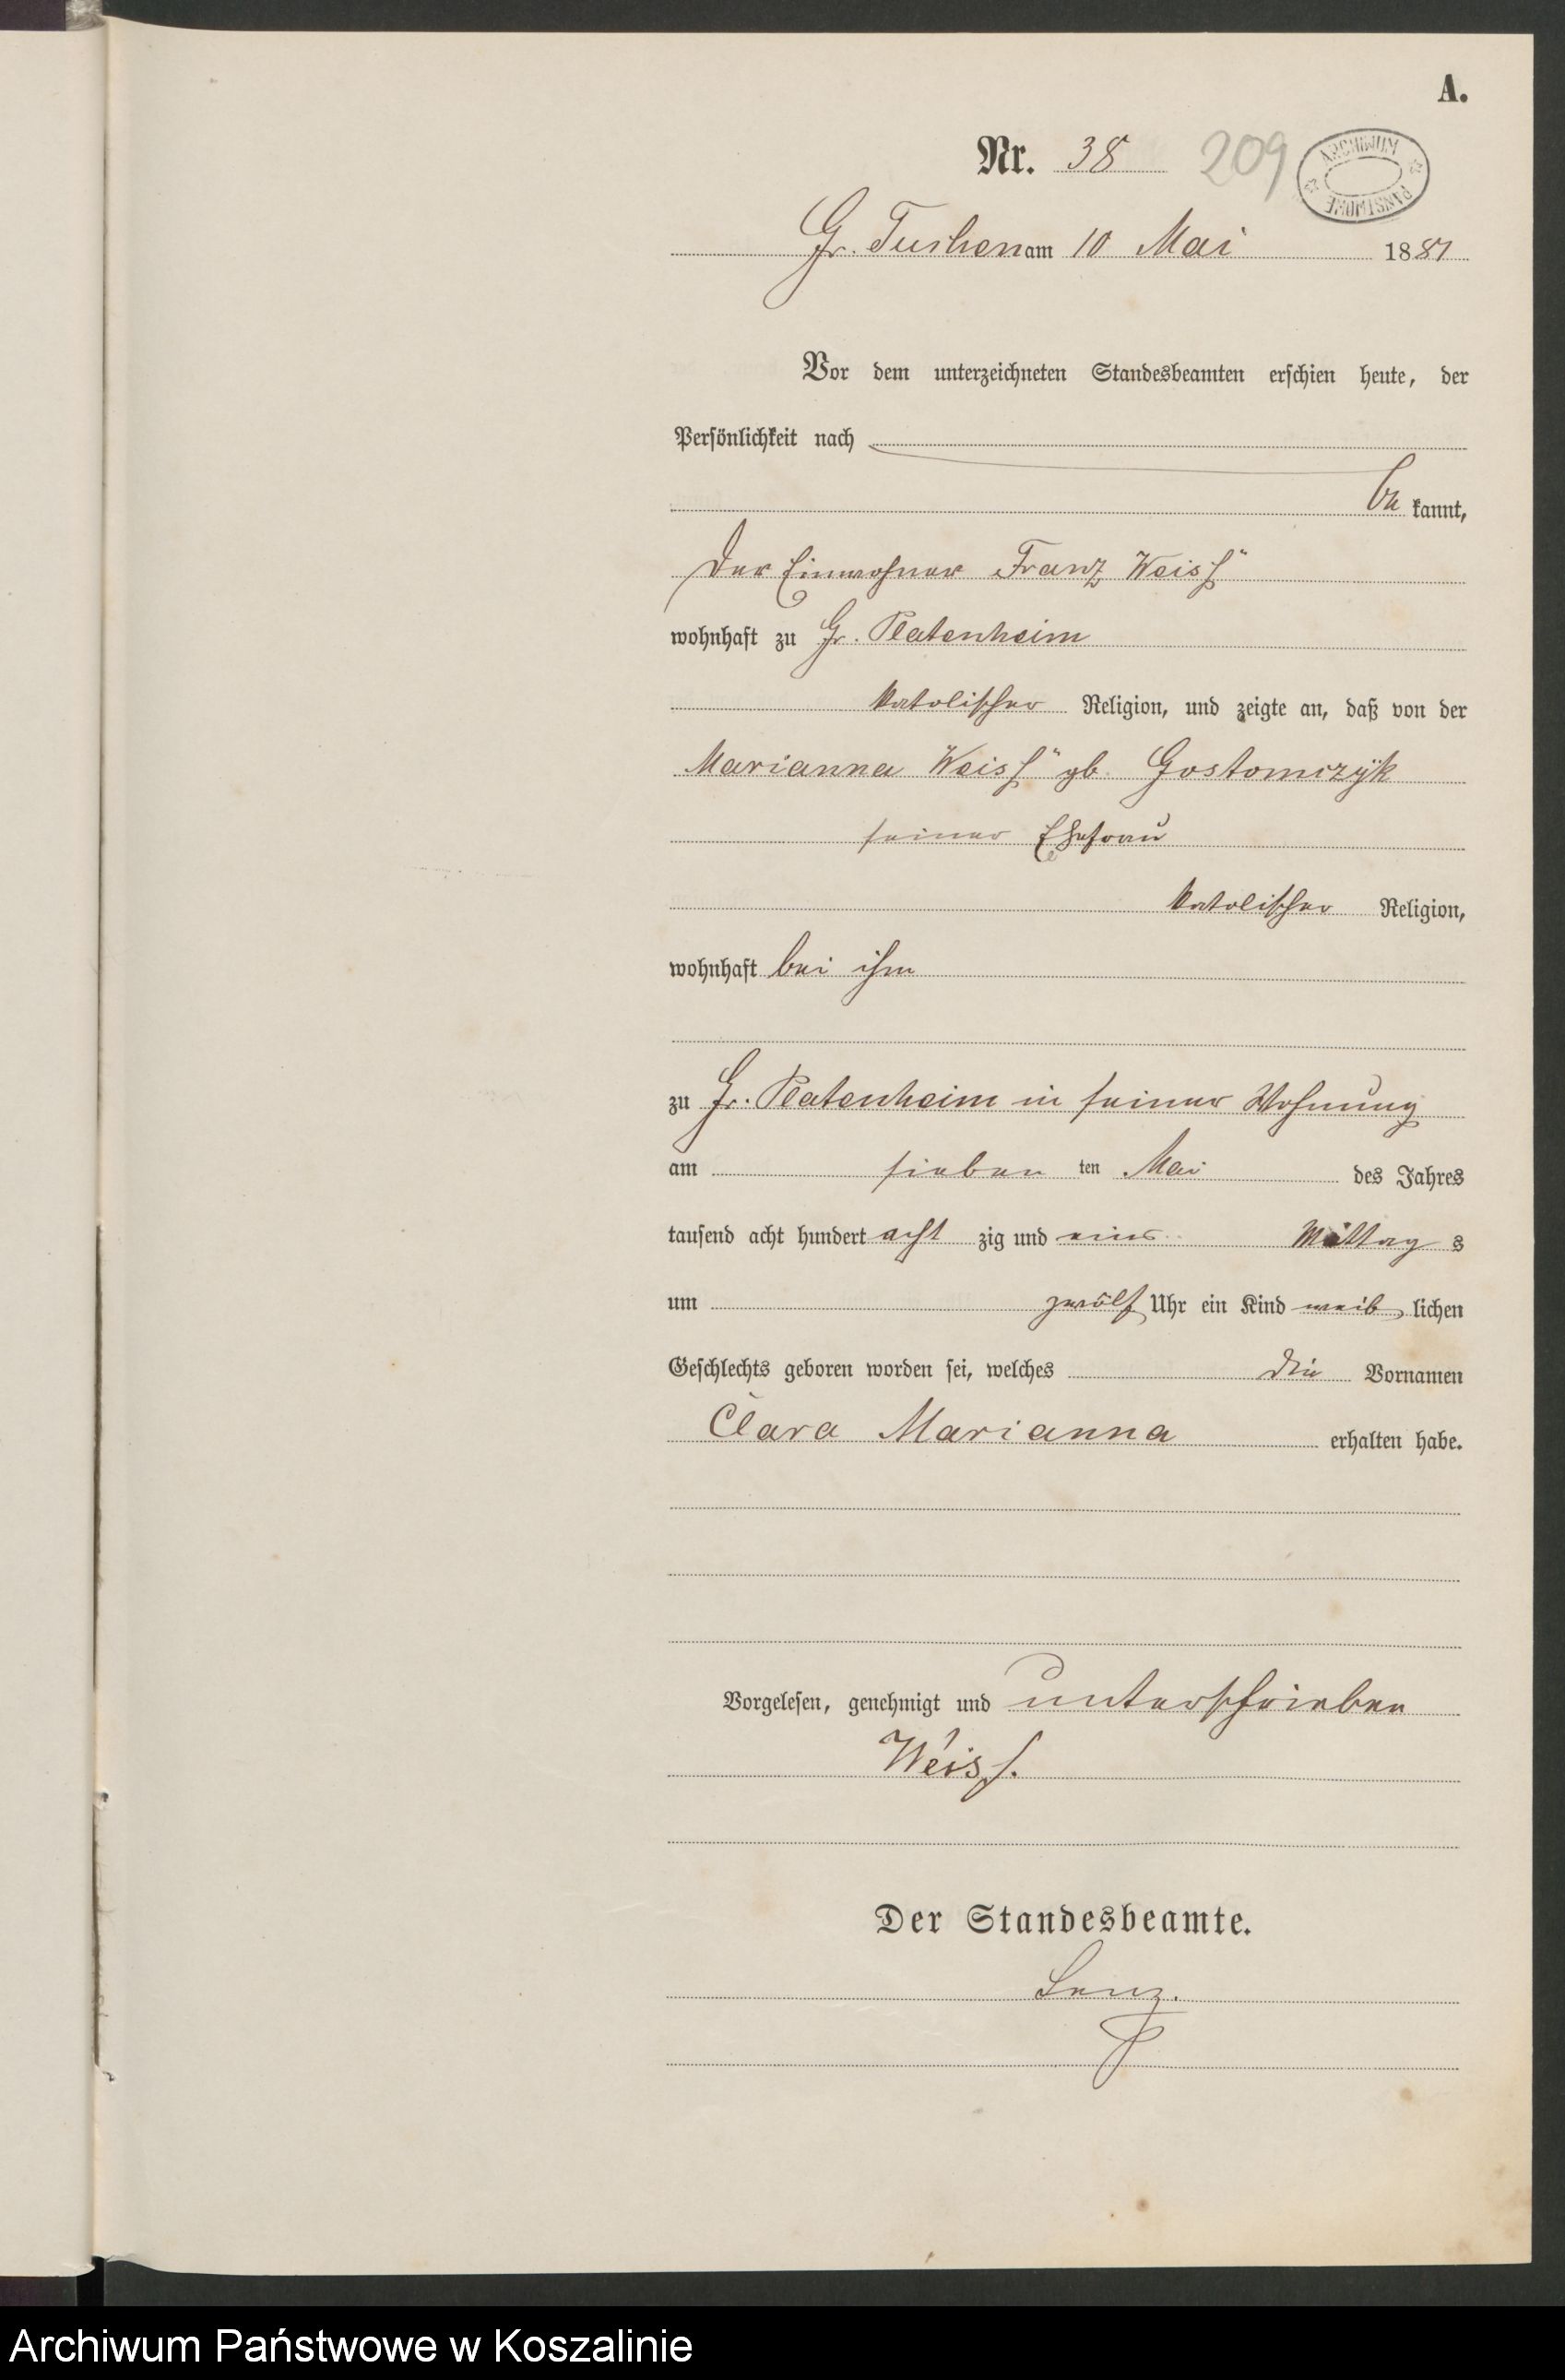 A.
Nr. 38 209
ARCHIWUM PAŃSTWOWE
Gr. Tuchen am 10 Mai 1881
Vor dem unterzeichneten Standesbeamten erschien heute, der
Persönlichkeit nach
be kannt,
Der Einwohner Franz Weiß
wohnhaft zu Gr. Platenheim
katolischer Religion, und zeigte an, daß von der
Marianna Weiß gb. Gostomczyk
seiner Ehefrau
katolischer Religion,
wohnhaft bei ihm
zu Gr. Platenheim in seiner Wohnung
am sieben ten Mai des Jahres
tausend acht hundert acht zig und eins Mittag s
um zwölf Uhr ein Kind weib lichen
Geschlechts geboren worden sei, welches die Vornamen
Clara Marianna erhalten habe.
Vorgelesen, genehmigt und unterschrieben
Weiß.
Der Standesbeamte.
Lenz.
Archiwum Państwowe w Koszalinie